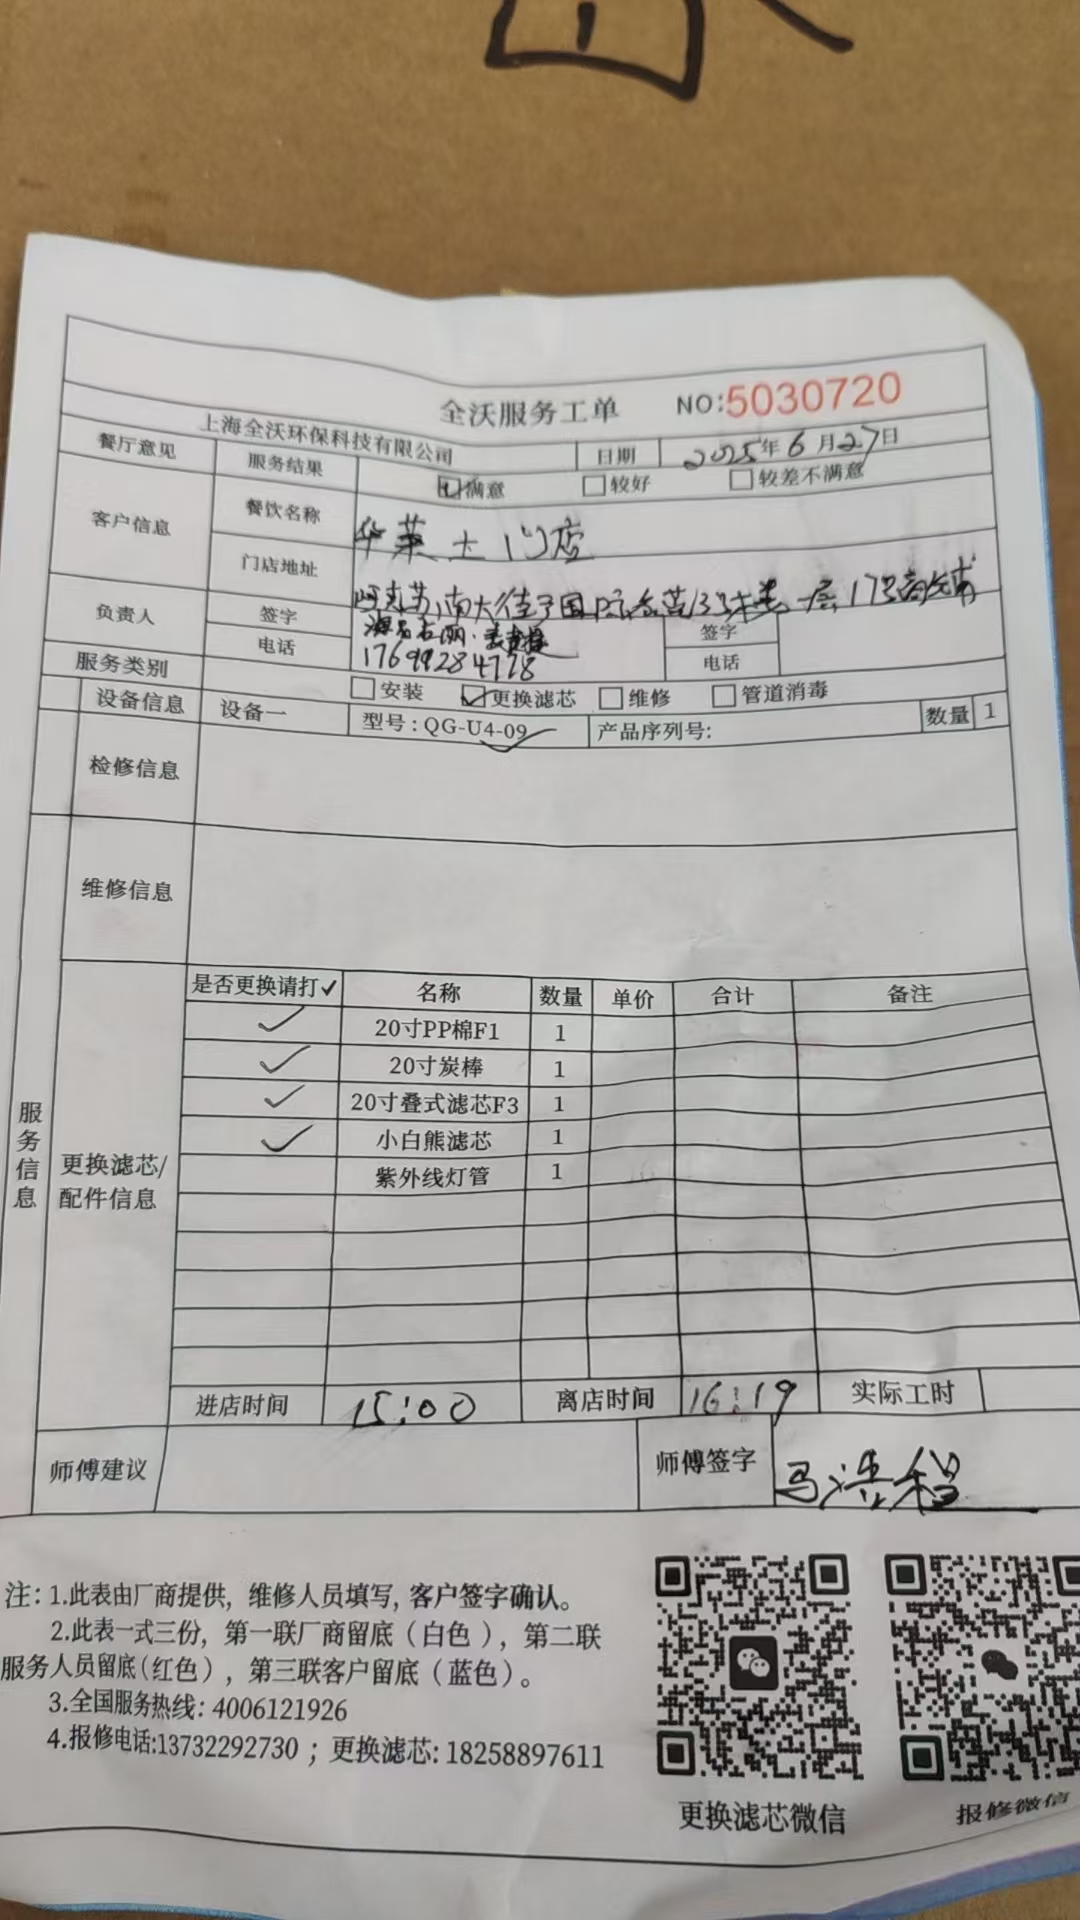 全沃服务工单 NO:5030720
上海全沃环保科技有限公司 日期 2025年6月27日
餐厅意见 服务结果 满意 较好 较差不满意
客户信息 餐饮名称 华莱士门店
门店地址 一层17号商铺
负责人 签字 签字
电话 17699284778 电话
服务类别 安装 更换滤芯 维修 管道消毒
设备信息 设备一 型号:QG-U4-09 产品序列号: 数量 1
检修信息
维修信息
服务信息
更换滤芯/
配件信息
是否更换请打✓ 名称 数量 单价 合计 备注
✓ 20寸PP棉F1 1
✓ 20寸炭棒 1
✓ 20寸叠式滤芯F3 1
✓ 小白熊滤芯 1
紫外线灯管 1
进店时间 15:00 离店时间 16:19 实际工时
师傅建议 师傅签字 马浩程
注: 1.此表由厂商提供, 维修人员填写, 客户签字确认。
2.此表一式三份, 第一联厂商留底(白色), 第二联
服务人员留底(红色), 第三联客户留底(蓝色)。
3.全国服务热线: 4006121926
4.报修电话:13732292730 ; 更换滤芯: 18258897611
更换滤芯微信
报修微信